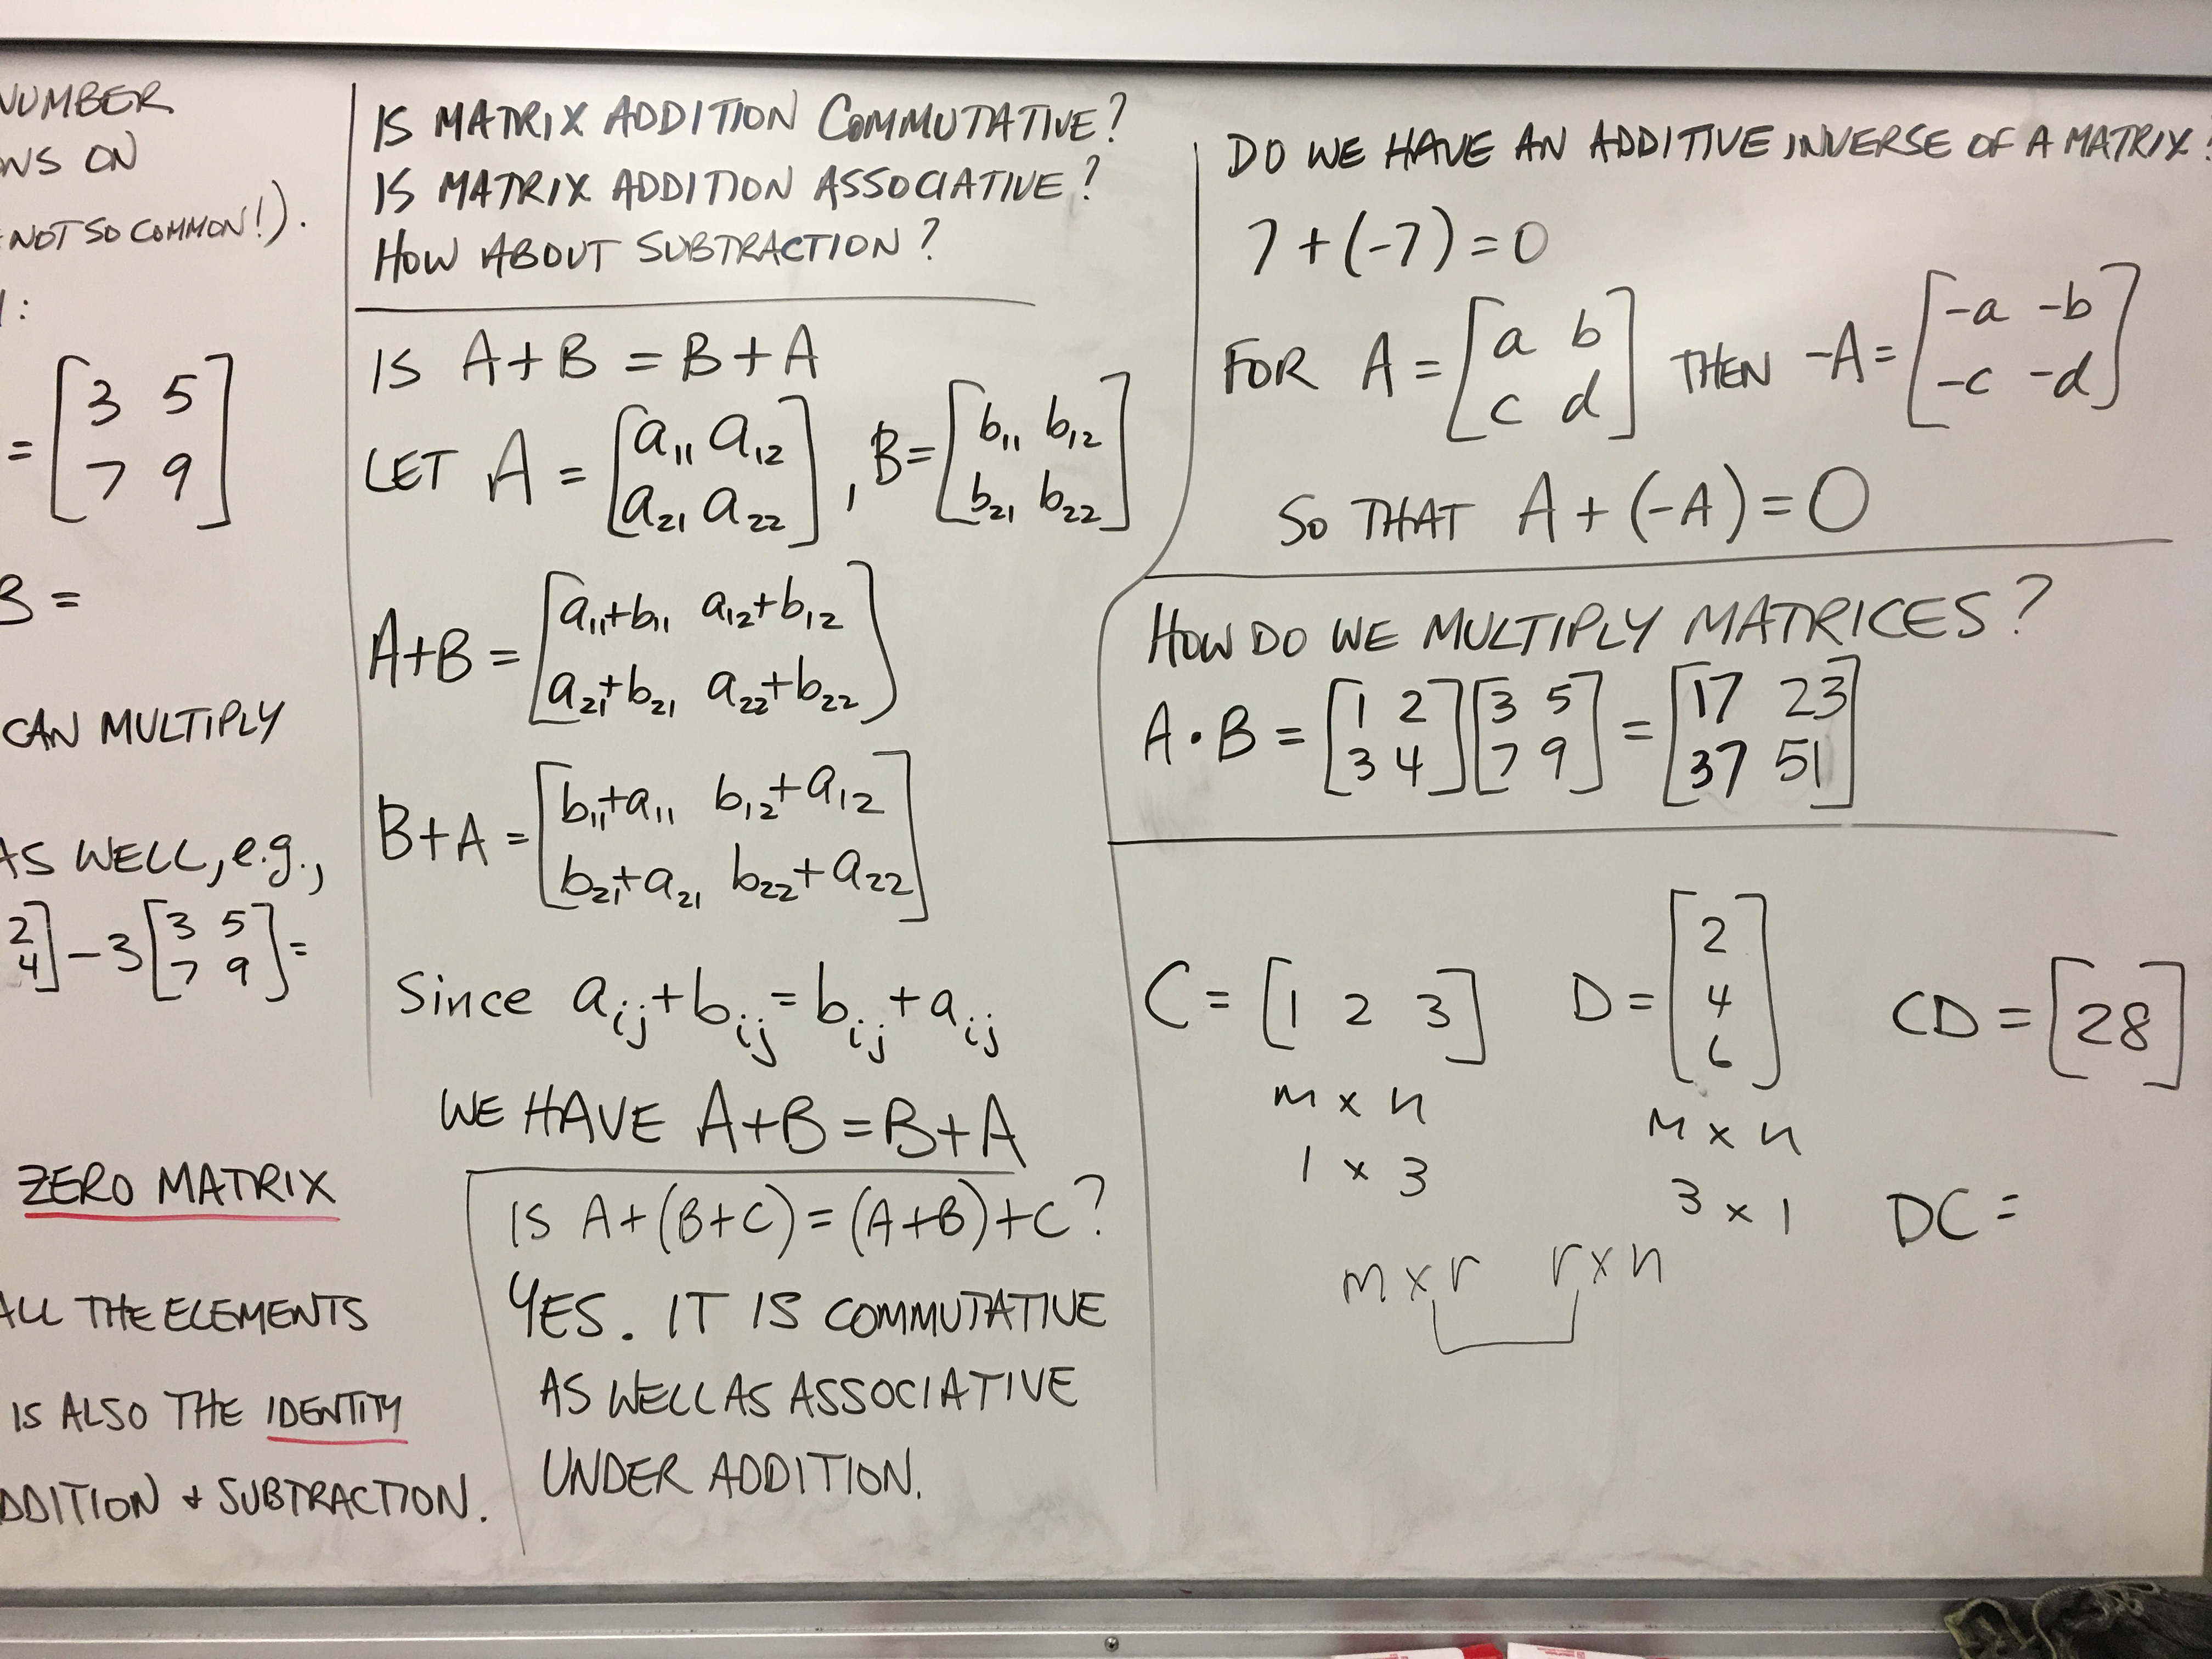 NUMBER
NS ON
NOT SO COMMON!).
:
= [3 5
7 9]
B =
CAN MULTIPLY
AS WELL, e.g.,
2
4] - 3 [3 5
7 9] =
ZERO MATRIX
ALL THE ELEMENTS
IS ALSO THE IDENTITY
DDITION + SUBTRACTION.
IS MATRIX ADDITION COMMUTATIVE?
IS MATRIX ADDITION ASSOCIATIVE?
HOW ABOUT SUBTRACTION?
IS A+B = B+A
LET A = [a11 a12
a21 a22], B = [b11 b12
b21 b22]
A+B = [a11+b11 a12+b12
a21+b21 a22+b22]
B+A = [b11+a11 b12+a12
b21+a21 b22+a22]
Since aij+bij = bij+aij
WE HAVE A+B = B+A
IS A+(B+C) = (A+B)+C?
YES. IT IS COMMUTATIVE
AS WELL AS ASSOCIATIVE
UNDER ADDITION.
DO WE HAVE AN ADDITIVE INVERSE OF A MATRIX?
7 + (-7) = 0
FOR A = [a b
c d] THEN -A = [-a -b
-c -d]
SO THAT A + (-A) = O
HOW DO WE MULTIPLY MATRICES?
A • B = [1 2
3 4] [3 5
7 9] = [17 23
37 51]
C = [1 2 3] D = [2
4
6] CD = [28]
m x n m x n
1 x 3 3 x 1 DC =
m x r r x n